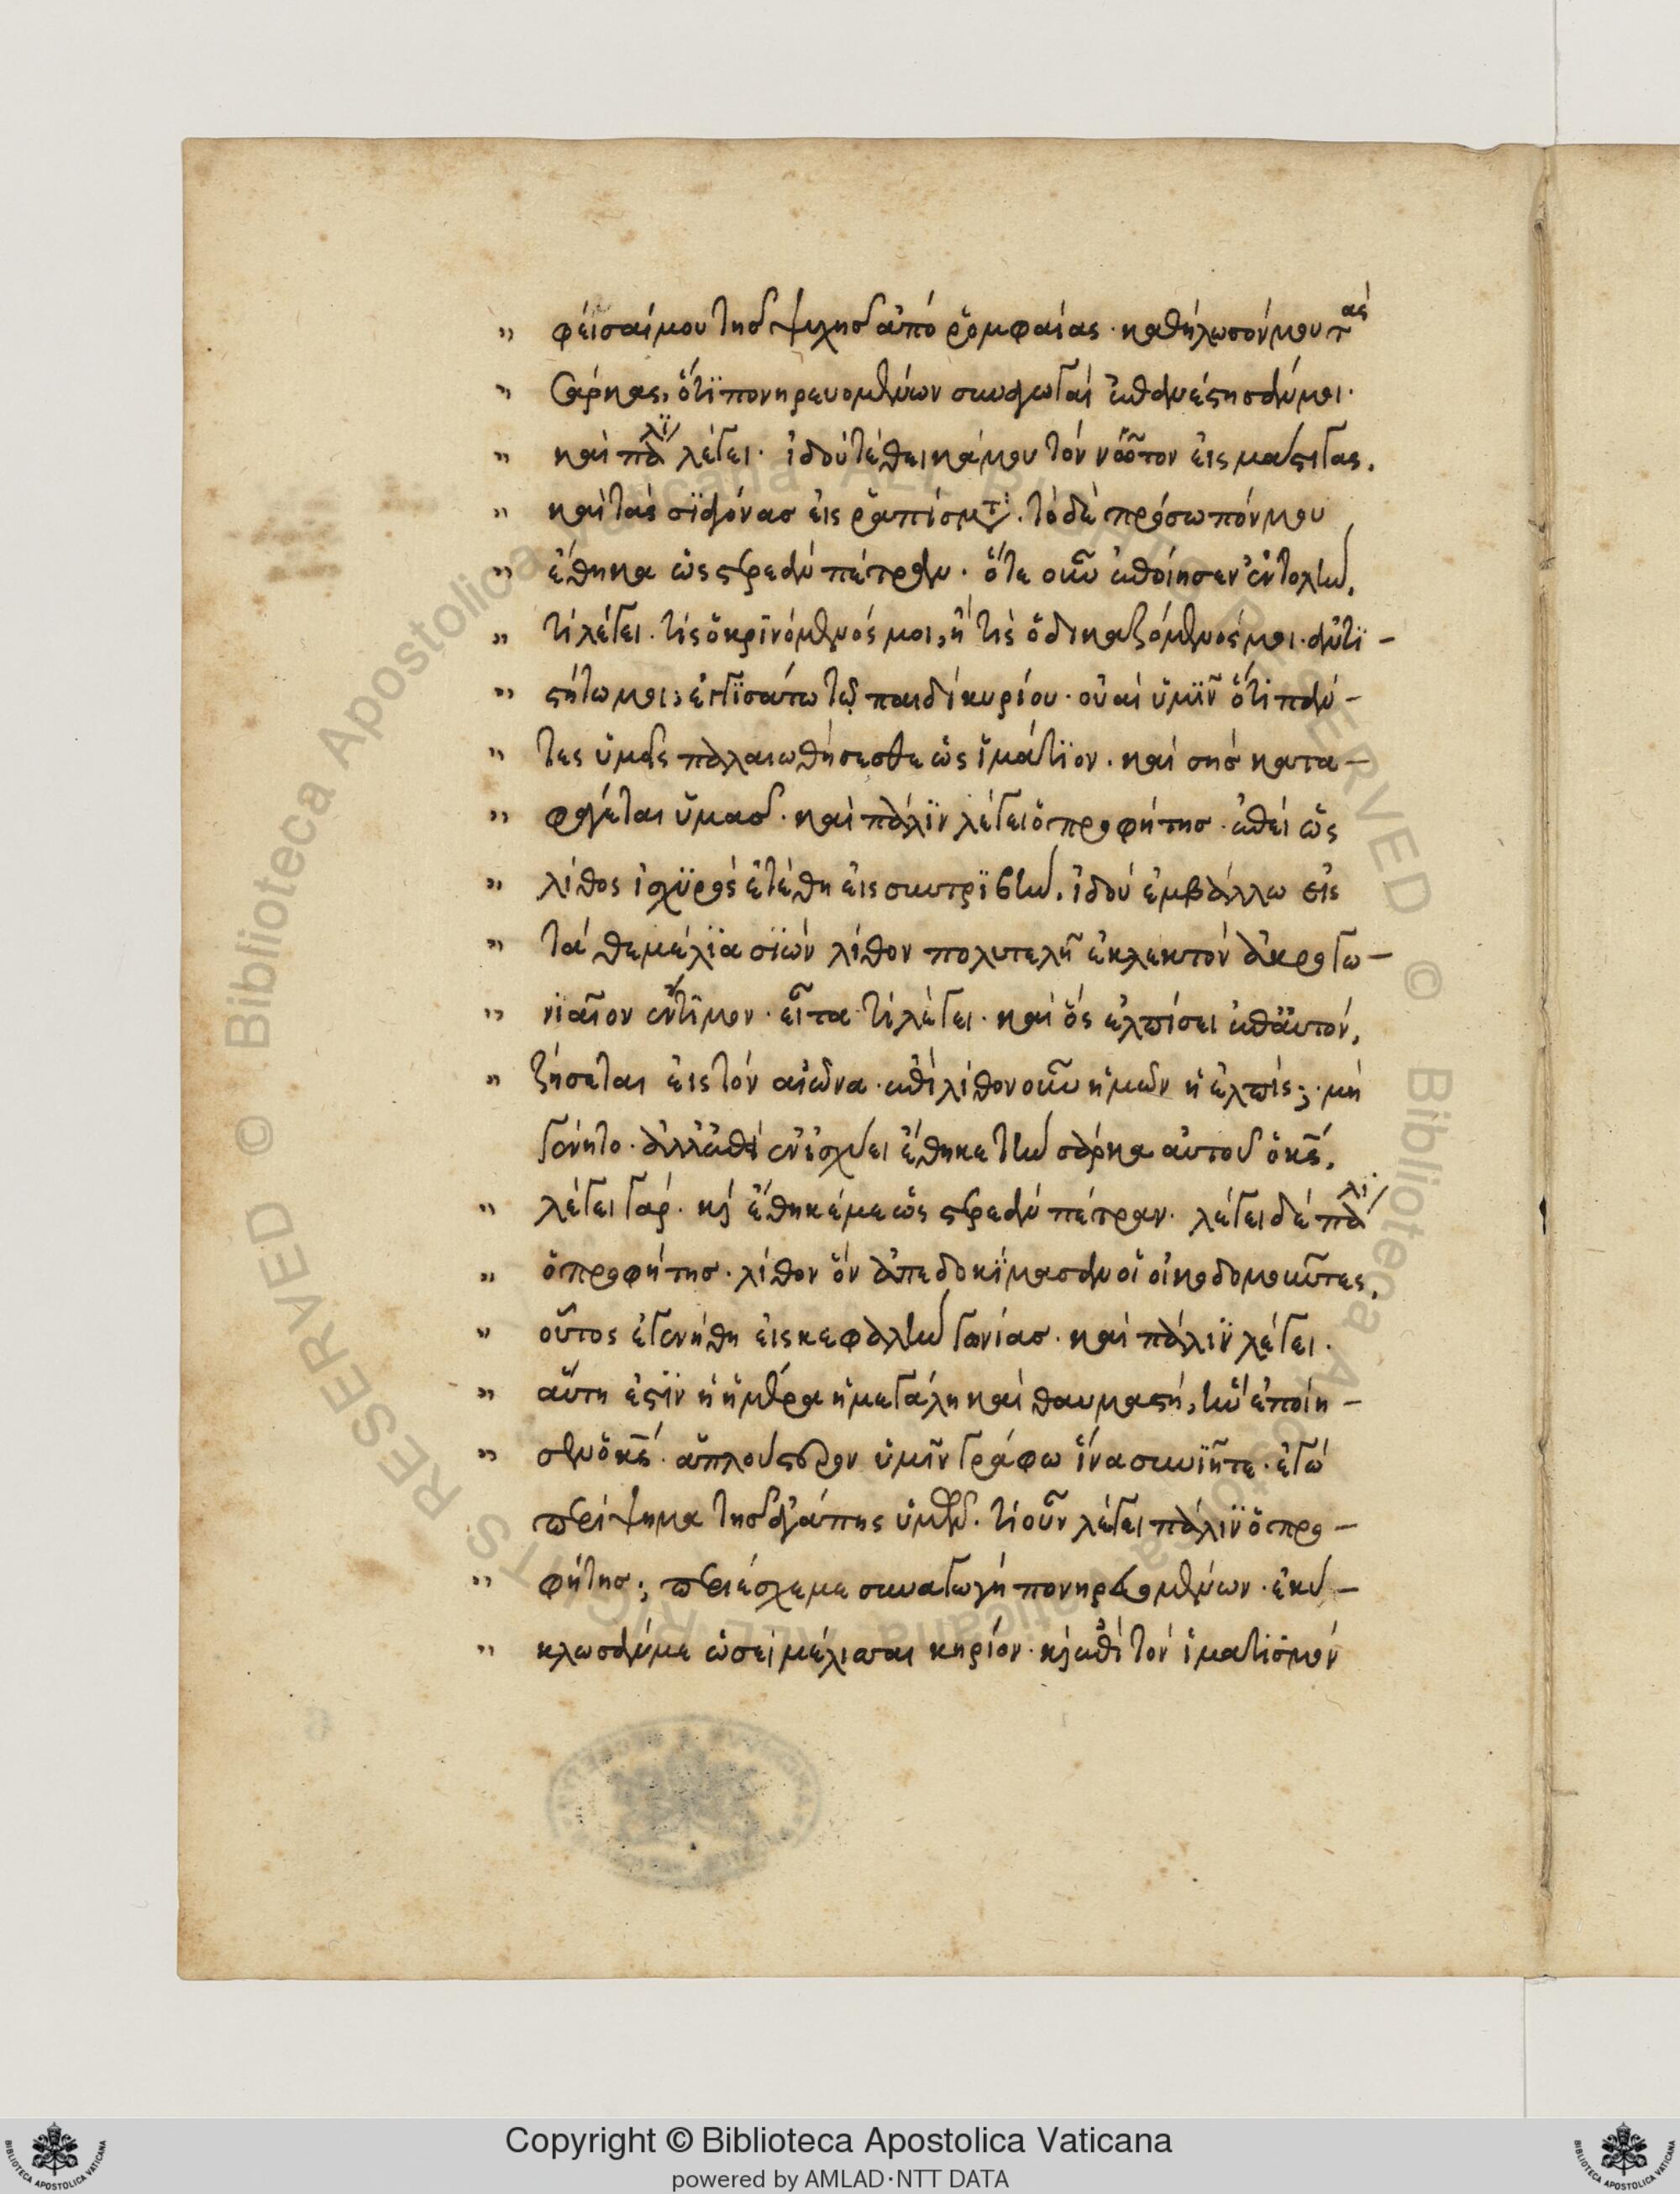 φεῖσαί μου τῆς ψυχῆς ἀπὸ ῥομφαίας· καθήλωσόν μου τὰς
σάρκας, ὅτι πονηρευομένων συναγωγαὶ ἐπανέστησάν μοι.
καὶ πάλι λέγει· ἰδοὺ τέθεικά μου τὸν νῶτον εἰς μάστιγας,
καὶ τὰς σιαγόνας εἰς ῥαπίσματα· τὸ δὲ πρόσωπόν μου
ἔθηκα ὡς στερεὰν πέτραν. ὅτε οὖν ἐποίησεν ἐντολὴν,
τί λέγει· τίς ὁ κρινόμενός μοι, ἢ τίς ὁ δικαζόμενός μοι· ἀντι-
στήτω μοι, ἐγγισάτω τῷ παιδὶ κυρίου· οὐαὶ ὑμῖν ὅτι πάν-
τες ὑμεῖς παλαιωθήσεσθε ὡς ἱμάτιον· καὶ σὴς κατα-
φάγεται ὑμᾶς. καὶ πάλιν λέγει ὁ προφήτης· ἐπεὶ ὡς
λίθος ἰσχυρὸς ἐτέθη εἰς συντριβὴν, ἰδοὺ ἐμβάλλω εἰς
τὰ θεμέλια σιὼν λίθον πολυτελῆ ἐκλεκτὸν ἀκρογω-
νιαῖον ἔντιμον· εἶτα τί λέγει· καὶ ὃς ἐλπίσει ἐπ' αὐτὸν,
ζήσεται εἰς τὸν αἰῶνα· ἐπὶ λίθον οὖν ἡμῶν ἡ ἐλπίς; μὴ
γένοιτο· ἀλλ' ἐπεὶ ἐν ἰσχύει ἔθηκε τὴν σάρκα αὐτοῦ ὁ κς,
λέγει γάρ· καὶ ἔθηκέ με ὡς στερεὰν πέτραν. λέγει δὲ πάλι
ὁ προφήτης· λίθον ὃν ἀπεδοκίμασαν οἱ οἰκοδομοῦντες,
οὗτος ἐγενήθη εἰς κεφαλὴν γωνίας· καὶ πάλιν λέγει·
αὕτη ἐστὶν ἡ ἡμέρα ἡ μεγάλη καὶ θαυμαστή, ἣν ἐποίη-
σεν ὁ κς. ἁπλούστερον ὑμῖν γράφω ἵνα συνιῆτε· ἐγὼ
περίψημα τῆς ἀγάπης ὑμῶν. τί οὖν λέγει πάλιν ὁ προ-
φήτης; περιέσχε με συναγωγὴ πονηρευομένων· ἐκύ-
κλωσάν με ὡσεὶ μέλισσαι κηρίον· καὶ ἐπὶ τὸν ἱματισμόν
Copyright © Biblioteca Apostolica Vaticana
powered by AMLAD·NTT DATA